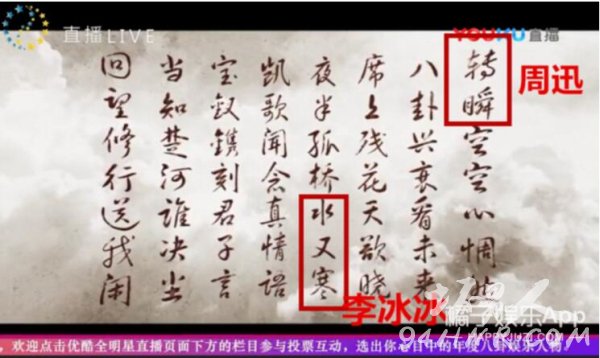 直播LIVE
YOUKU直播
转瞬空空心惆
八卦兴衰看未来
席上残花天欲晓
夜半孤桥水又寒
凯歌闻念真情语
宝钗镌刻君子言
当知楚河谁决坐
回望修行送我
周迅
李冰冰
橘子娱乐App
欢迎点击优酷全明星直播页面下方的栏目参与投票互动，选出你心目中的年度八卦娱乐人物